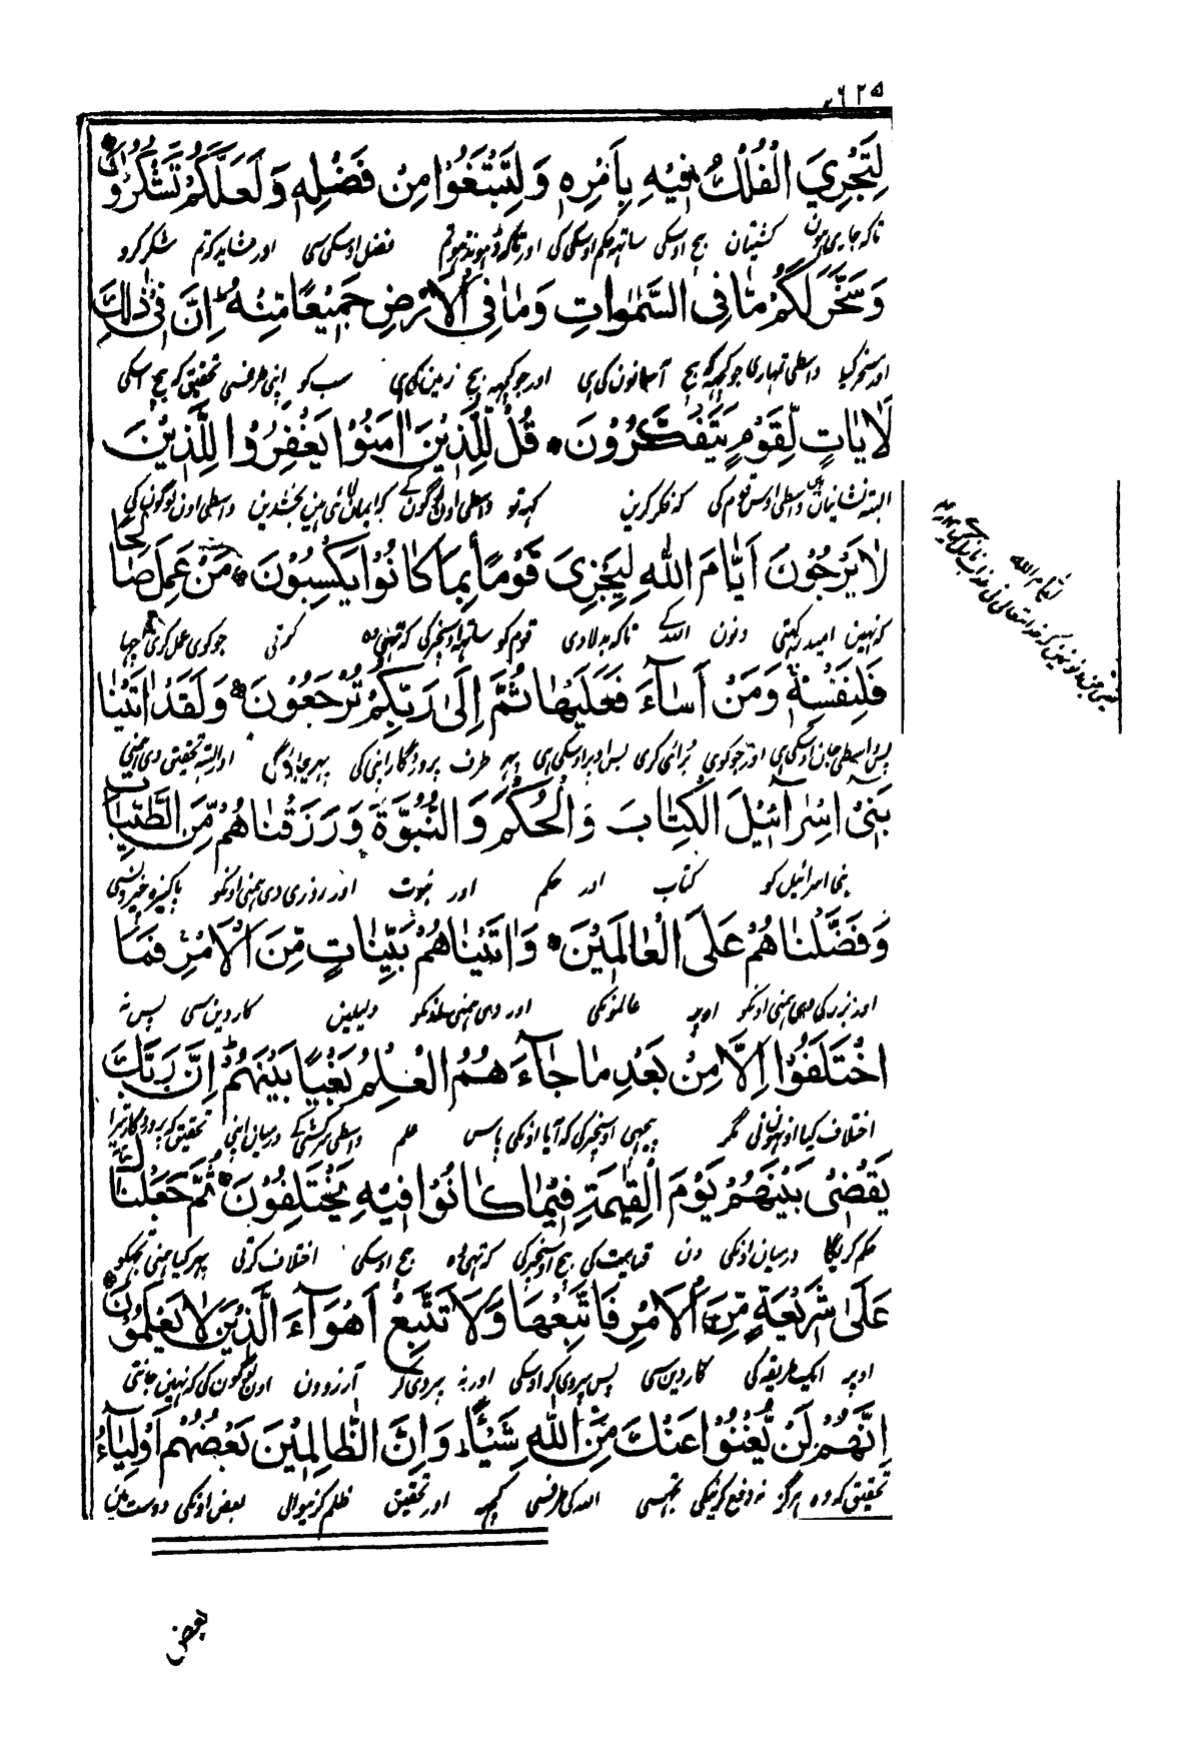 ٦٢٥
لِتَجْرِيَ الْفُلْكُ فِيْهِ بِاَمْرِهٖ وَلِتَبْتَغُوْا مِنْ فَضْلِهٖ وَلَعَلَّكُمْ تَشْكُرُوْنَ
تاکہ جاری ہون کشتیان بیچ اوسکی ساتہہ حکم اوسکی کی اور تاکہ ڈہونڈہو تم فضل اوسکی سی اور شاید کہ تم شکر کرو
وَسَخَّرَ لَكُمْ مَّا فِى السَّمٰوَاتِ وَمَا فِى الْاَرْضِ جَمِيْعًا مِّنْهُ اِنَّ فِىْ ذٰلِكَ
اور مسخر کیا واسطی تمہاری جو کچہہ کہ بیچ آسمانون کی ہی اور جو کچہہ بیچ زمین کی ہی سب کو اپنی طرف سی تحقیق کہ بیچ اسکی
لَاٰيَاتٍ لِّقَوْمٍ يَّتَفَكَّرُوْنَ قُلْ لِلَّذِيْنَ اٰمَنُوْا يَغْفِرُوْا لِلَّذِيْنَ
البتہ نشانیان ہین واسطی اوس قوم کی کہ فکر کرین کہہ تو واسطی اون لوگون کے کہ ایمان لائی ہین بخشدین واسطی اون لوگون کی
لَا يَرْجُوْنَ اَيَّامَ اللّٰهِ لِيَجْزِىَ قَوْمًا بِمَا كَانُوْا يَكْسِبُوْنَ مَنْ عَمِلَ صَالِحًا
کہ نہین امید رکہتی دنون اللہ کے تاکہ بدلا دی قوم کو ساتہہ اوسچیز کی کہ تہی وہ کرتی جو کوی عمل کری اچہا
فَلِنَفْسِهٖ وَمَنْ اَسَآءَ فَعَلَيْهَا ثُمَّ اِلٰى رَبِّكُمْ تُرْجَعُوْنَ وَلَقَدْ اٰتَيْنَا
پس واسطی جان اوسکی ہی اور جو کوی برائی کری پس اوپر اوسکی ہی پہر طرف پروردگار اپنی کی پہیر جاؤگی اور البتہ تحقیق دی ہمنی
بَنِىْ اِسْرَآئِيْلَ الْكِتَابَ وَالْحُكْمَ وَالنُّبُوَّةَ وَرَزَقْنَاهُمْ مِّنَ الطَّيِّبَاتِ
بنی اسرائیل کو کتاب اور حکم اور نبوت اور روزی دی ہمنی اونکو پاکیزہ چیزونسی
وَفَضَّلْنَاهُمْ عَلَى الْعَالَمِيْنَ وَاٰتَيْنَاهُمْ بَيِّنَاتٍ مِّنَ الْاَمْرِ فَمَا
اور بزرگی دی ہمنی اونکو اوپر عالمونکی اور دی ہمنی اونکو دلیلین کار دین سی پس نہ
اخْتَلَفُوْا اِلَّا مِنْ بَعْدِ مَا جَآءَهُمُ الْعِلْمُ بَغْيًا بَيْنَهُمْ اِنَّ رَبَّكَ
اختلاف کیا اونہون نی مگر پیچہی اوسچیز کی کہ آیا اونکی پاس علم واسطی سرکشی کے درمیان اپنی تحقیق کہ پروردگار تیرا
يَقْضِىْ بَيْنَهُمْ يَوْمَ الْقِيٰمَةِ فِيْمَا كَانُوْا فِيْهِ يَخْتَلِفُوْنَ ثُمَّ جَعَلْنَاكَ
حکم کریگا درمیان اونکی دن قیامت کی بیچ اوسچیز کی کہ تہی وہ بیچ اوسکی اختلاف کرتی پہر کیا ہمنی تجہکو
عَلٰى شَرِيْعَةٍ مِّنَ الْاَمْرِ فَاتَّبِعْهَا وَلَا تَتَّبِعْ اَهْوَآءَ الَّذِيْنَ لَا يَعْلَمُوْنَ
اوپر ایک طریقہ کی کار دین سی پس پیروی کر اوسکی اور نہ پیروی کر آرزوون اون لوگون کی کہ نہین جانتی
اِنَّهُمْ لَنْ يُّغْنُوْا عَنْكَ مِنَ اللّٰهِ شَيْئًا وَاِنَّ الظَّالِمِيْنَ بَعْضُهُمْ اَوْلِيَآءُ
تحقیق کہ وہ ہرگز نہ دفع کرینگی تجہسی اللہ کی طرف سی کچہہ اور تحقیق ظلم کرنیوالی بعض اونکی دوست ہین
بعض